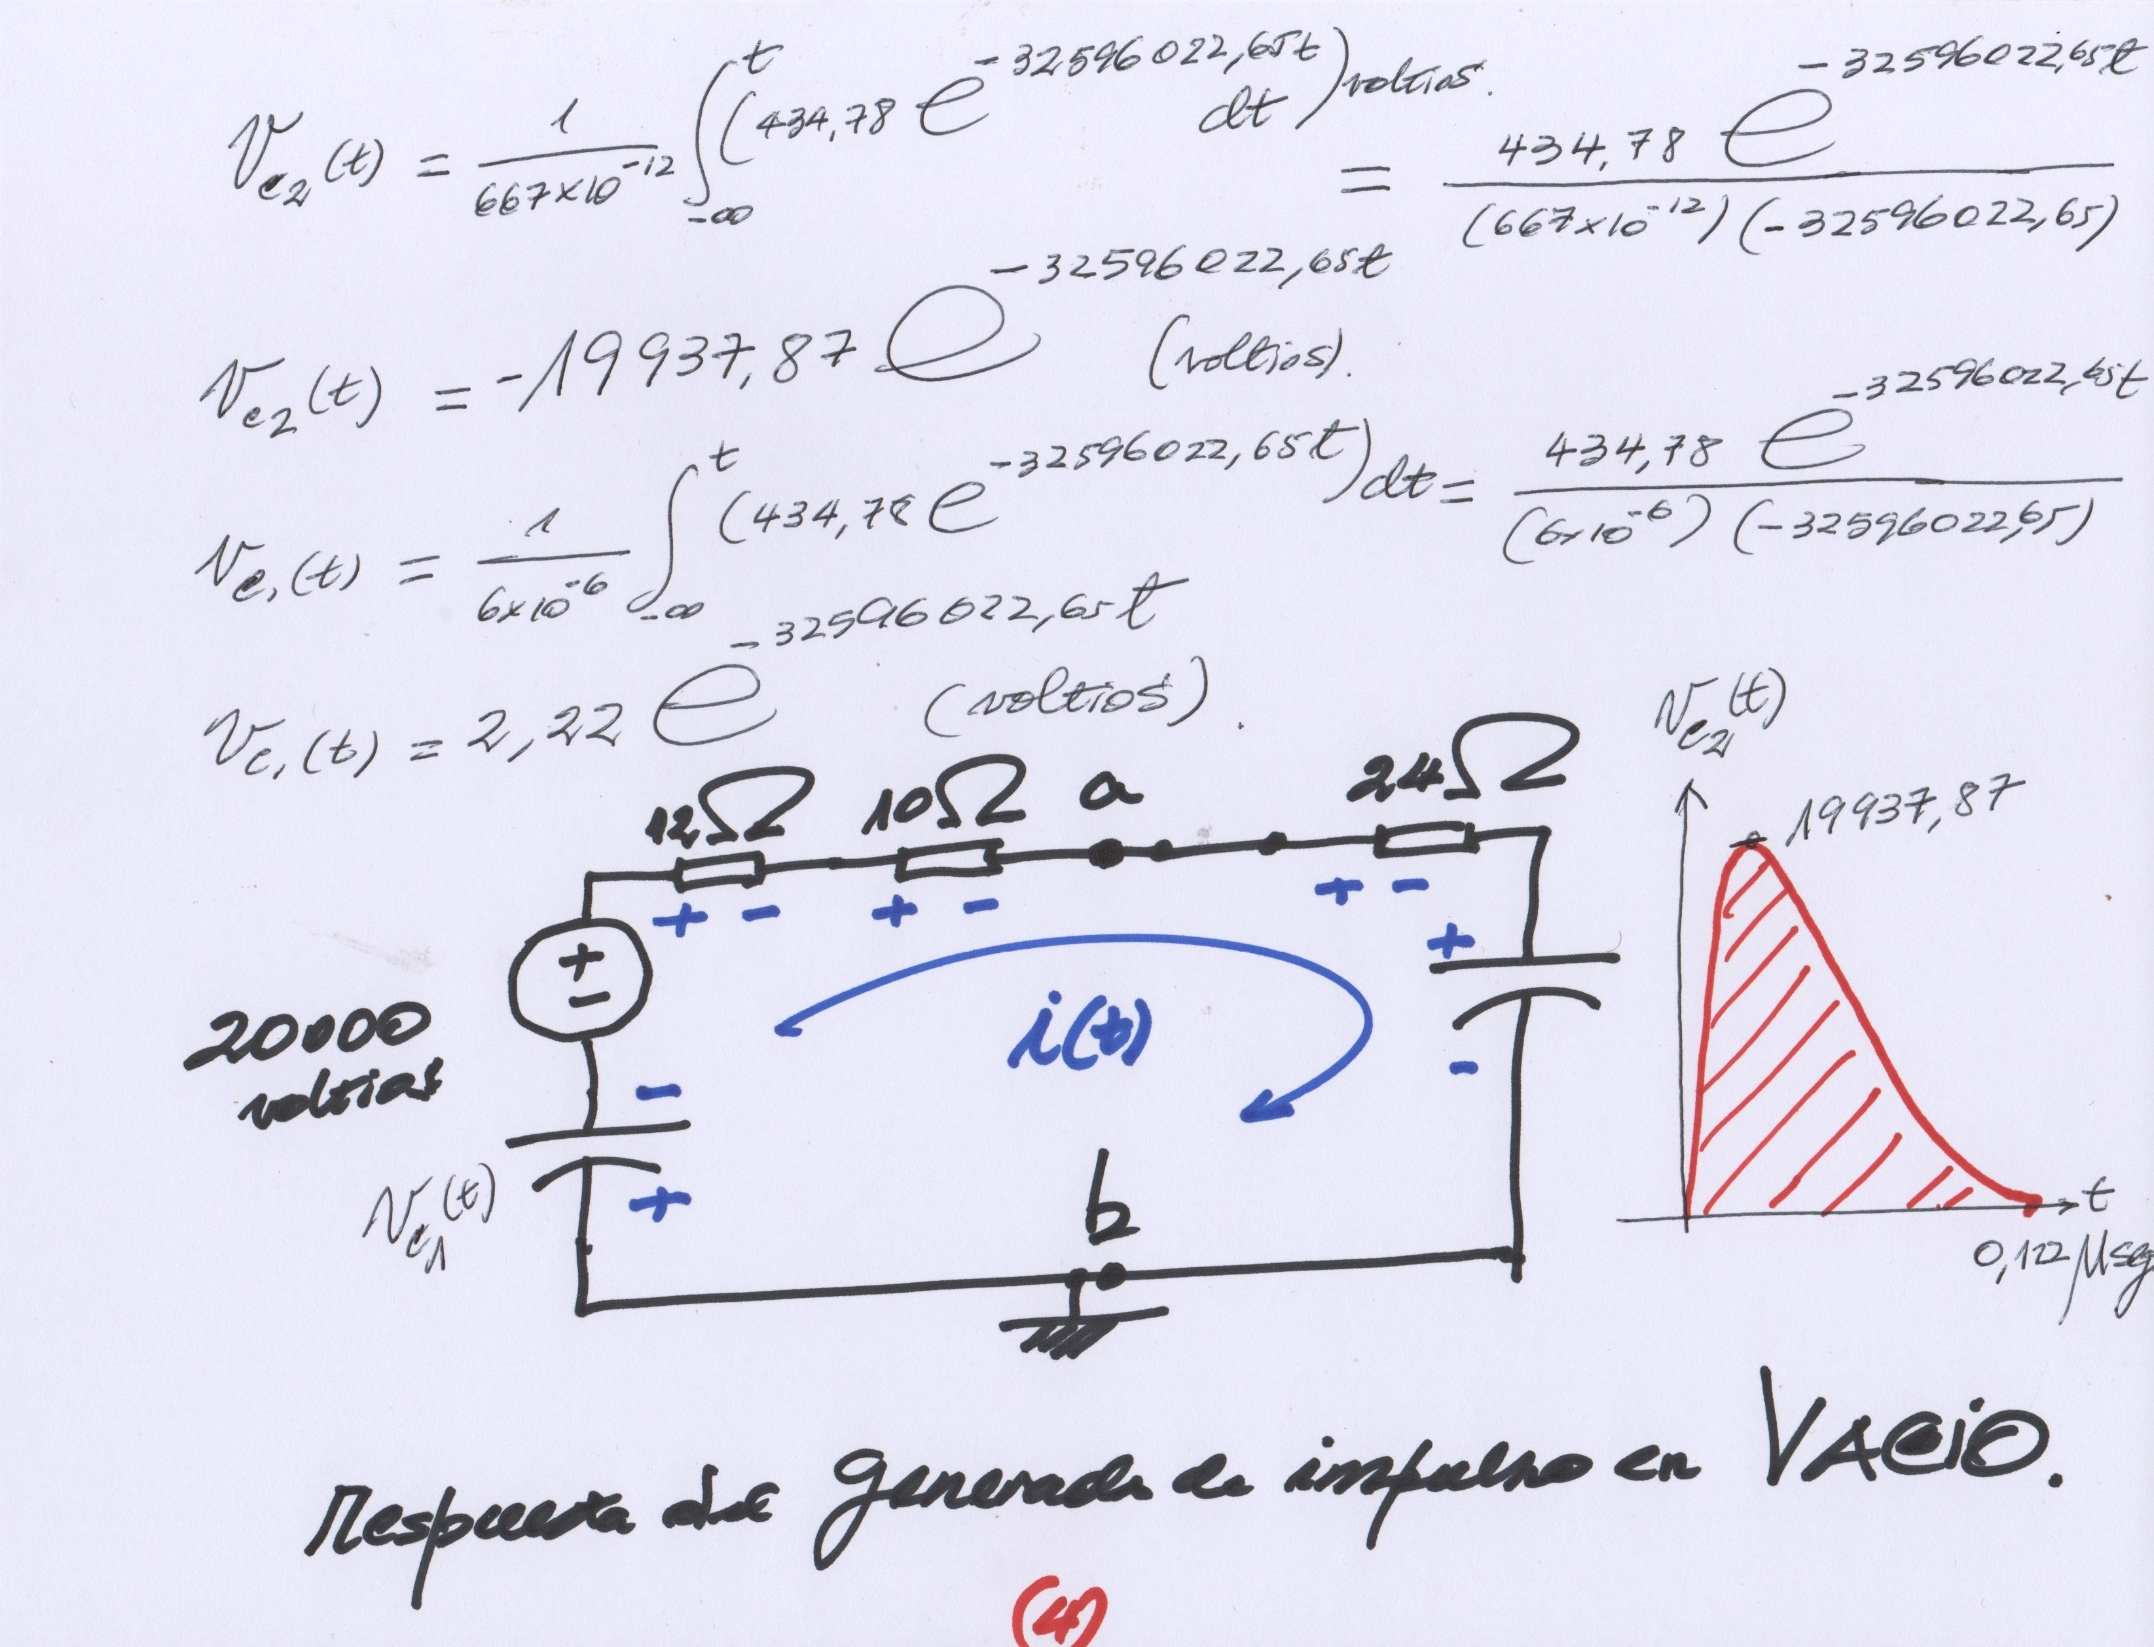 V_c2(t) = 1/(667×10^-12) ∫_-∞^t (434,78 e^(-32596022,65t) dt) voltios. = 434,78 e^(-32596022,65t) / ((667×10^-12) (-32596022,65))
V_c2(t) = -19937,87 e^(-32596022,65t) (voltios).
V_c1(t) = 1/(6×10^-6) ∫_-∞^t (434,78 e^(-32596022,65t)) dt = 434,78 e^(-32596022,65t) / ((6×10^-6) (-32596022,65))
V_c1(t) = 2,22 e^(-32596022,65t) (voltios).
V_c2(t)
19937,87
t
0,122 μseg
12Ω 10Ω a 24Ω
+ - + - + -
+
-
+
-
20000
voltios
i(t)
-
+
V_c1(t)
b
Respuesta del Generador de impulso en VACIO.
(4)